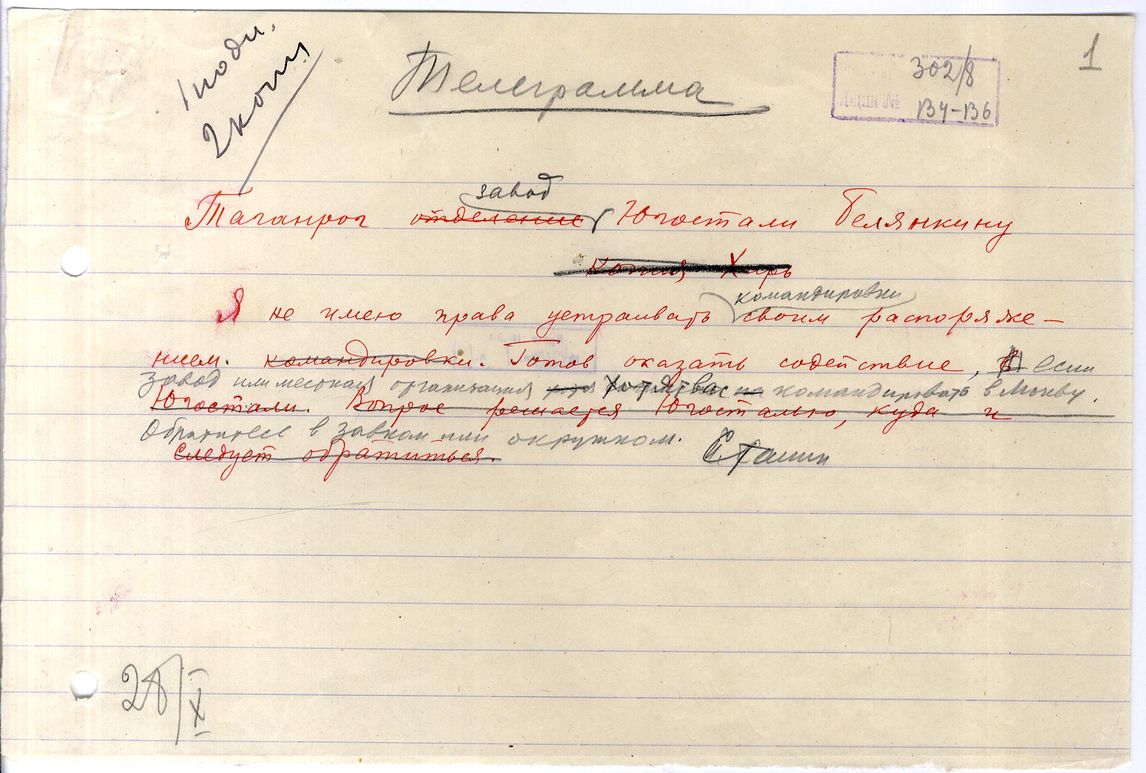 1 подл.
2 копии
Телеграмма
302/8
134-136
1
завод
Таганрог отделение Югостали Белянкину
копия Харь
командировки
Я не имею права устраивать своим распоряже-
нием. командировки. Готов оказать содействие, если
завод или местная организация хотят вас командировать в Москву.
Югостали. Вопрос решается Югосталью, куда и
Обратитесь в завком или окружком.
следует обратиться.
Сталин
28/X